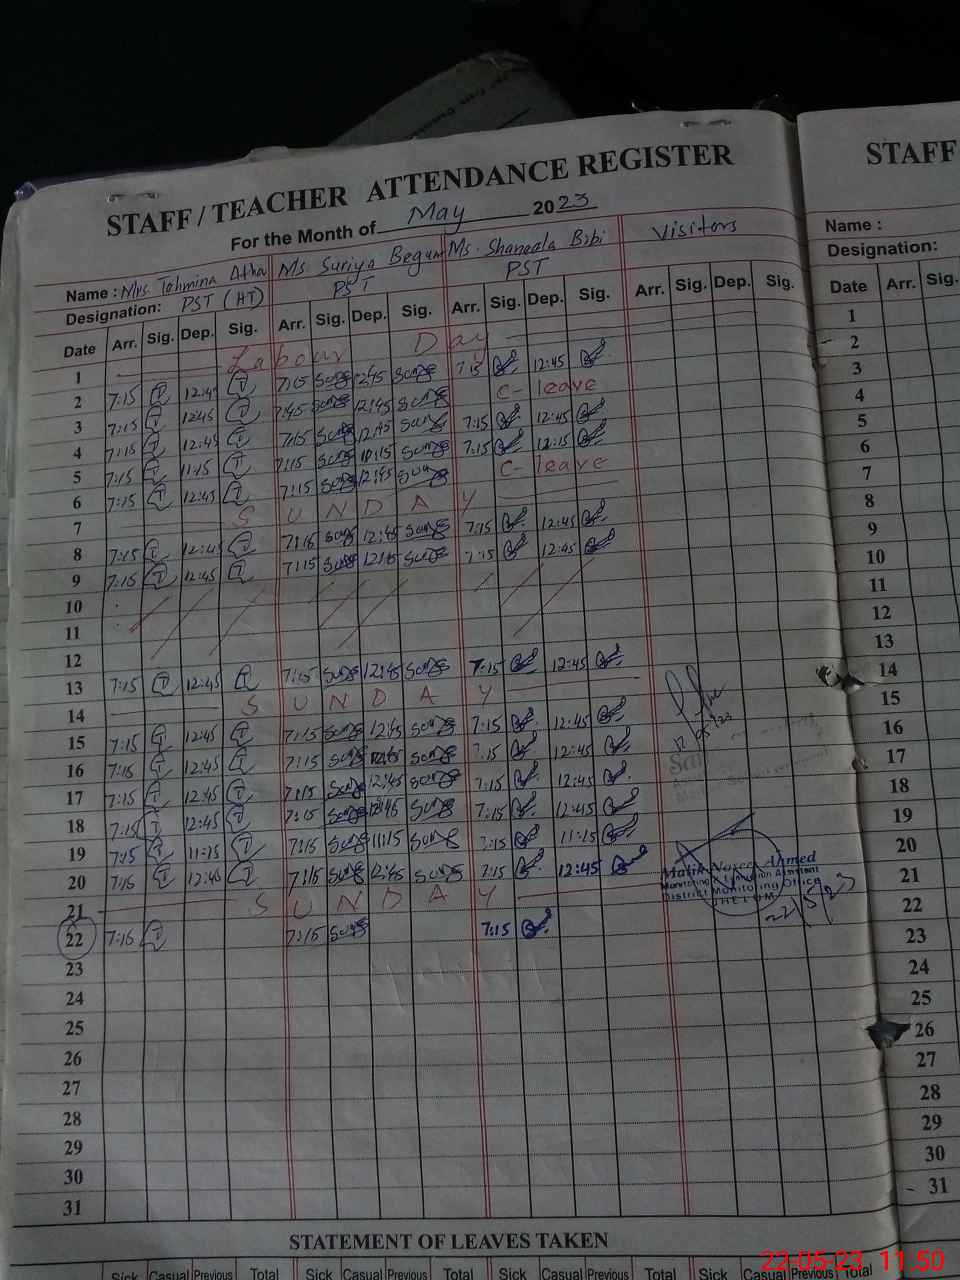 STAFF / TEACHER ATTENDANCE REGISTER
For the Month of May 2023
Name : Mrs. Tahmina Ms. Suriya Begum Ms. Shaneela Bibi Visitors
Designation: PST (HT) PST PST
Date Arr. Sig. Dep. Sig. Arr. Sig. Dep. Sig. Arr. Sig. Dep. Sig. Arr. Sig. Dep. Sig.
1 Labour Day
2 7:15 12:45 7:15 12:45 7:15 12:45
3 7:15 12:45 12:45 C-leave
4 7:15 12:45 7:15 12:45 7:15 12:45
5 7:15 11:15 7:15 7:15 12:15
6 7:15 12:45 7:15 12:45 C-leave
7 SUNDAY
8 7:15 12:45 7:15 12:45 7:15 12:45
9 7:15 12:45 7:15 12:45 7:15 12:45
10
11
12
13 7:15 12:45 7:15 12:45 7:15 12:45
14 SUNDAY
15 7:15 12:45 7:15 12:45 7:15 12:45
16 7:15 12:45 7:15 12:45 7:15 12:45
17 7:15 12:45 7:15 12:45 7:15 12:45
18 7:15 12:45 7:15 12:45 7:15 12:45
19 7:15 11:15 7:15 11:15 7:15 11:15
20 7:15 12:45 7:15 12:45 7:15 12:45
21 SUNDAY
22 7:15 7:15 7:15
23
24
25
26
27
28
29
30
31
Malik Naseer Ahmed
Monitoring & Evaluation Assistant
District Monitoring Office
JHELUM
22/5/23
STATEMENT OF LEAVES TAKEN
Sick Casual Previous Total Sick Casual Previous Total Sick Casual Previous Total Sick Casual Previous Total
STAFF
Name :
Designation:
Date Arr. Sig.
1
2
3
4
5
6
7
8
9
10
11
12
13
14
15
16
17
18
19
20
21
22
23
24
25
26
27
28
29
30
31
22-05-23 11:50